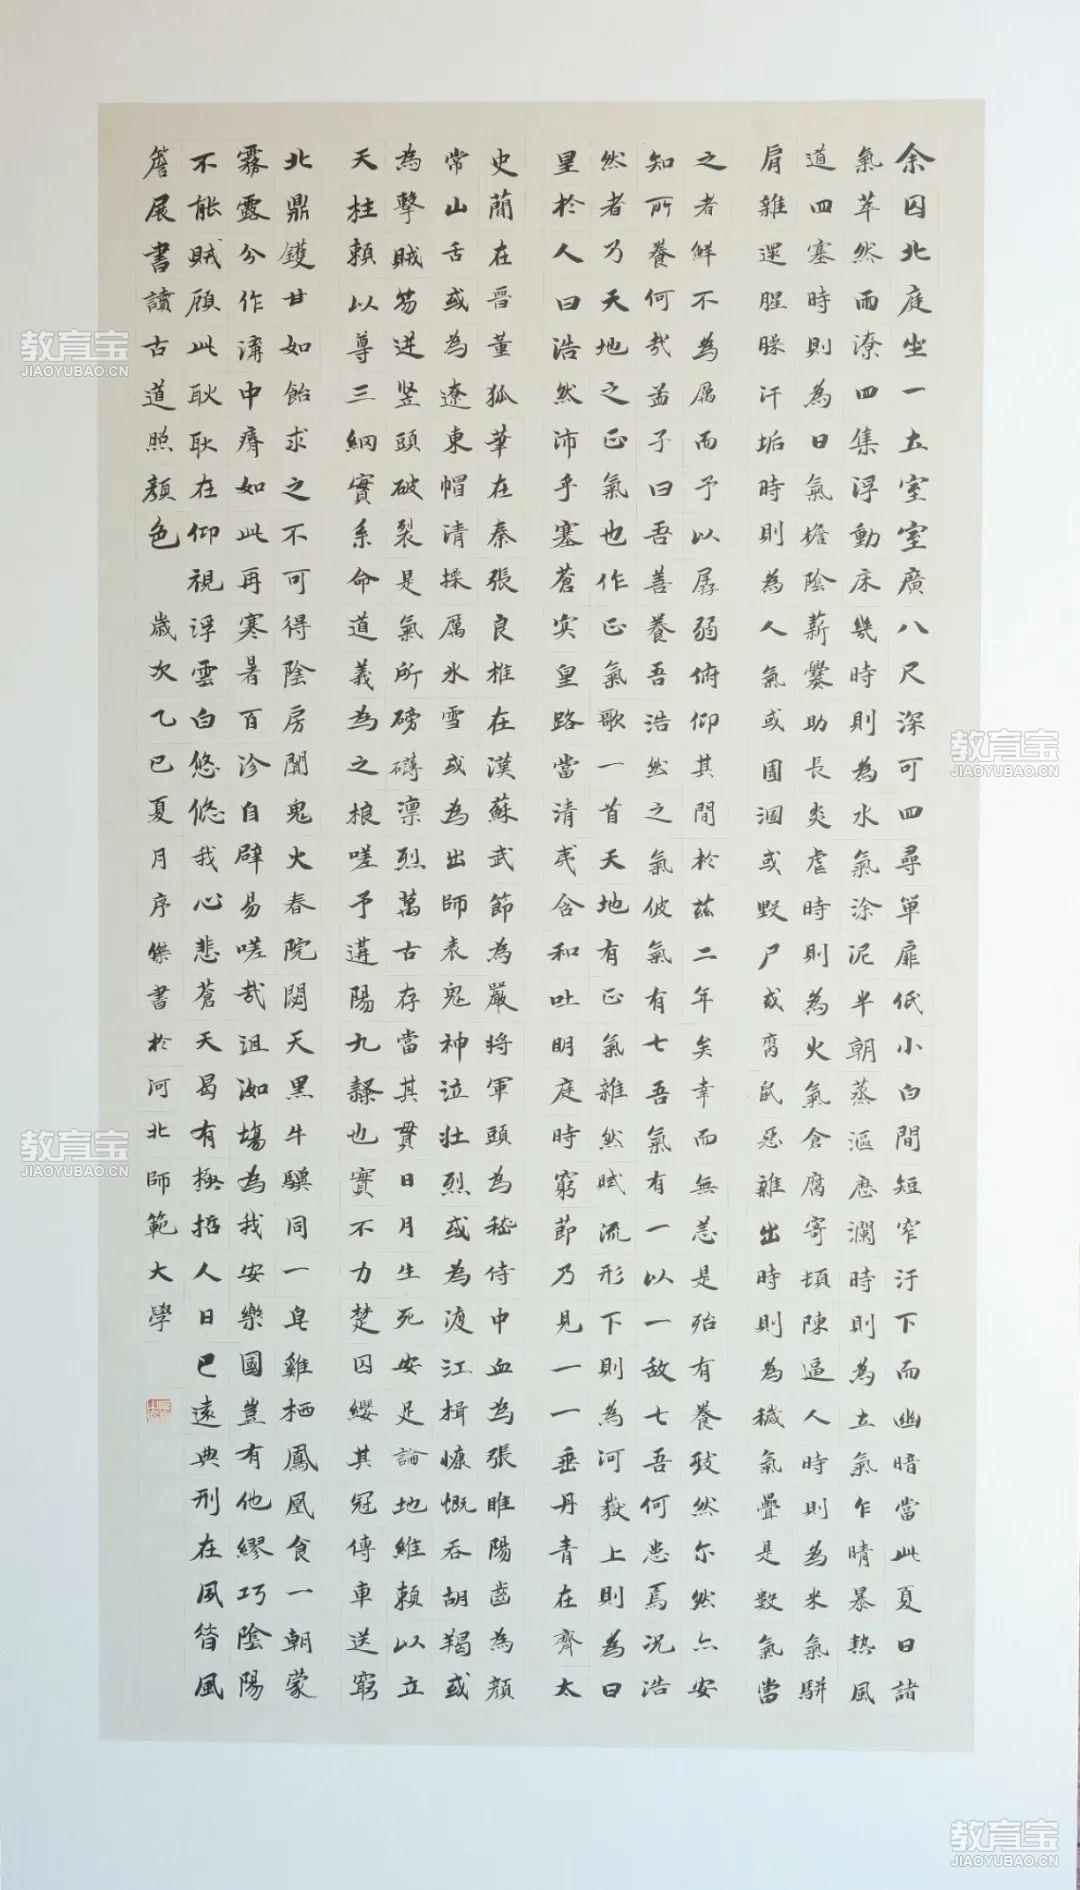 余囚北庭坐一土室室廣八尺深可四尋單扉低小白間短窄汙下而幽暗當此夏日諸
氣萃然而潦四集浮動床幾時則為水氣涂泥半朝蒸漚歷瀾時則為土氣乍晴暴熱風
道四塞時則為日氣檐陰薪爨助長炎虐時則為火氣倉腐寄頓陳逼人時則為米氣駢
肩雜遝腥臊汗垢時則為人氣或圊溷或毀尸或腐鼠惡雜出時則為穢氣疊是數氣當
之者鮮不為厲而予以孱弱俯仰其間於茲二年矣幸而無恙是殆有養致然尔然亦安
知所養何哉孟子曰吾善養吾浩然之氣彼氣有七吾氣有一以一敵七吾何患焉況浩
然者乃天地之正氣也作正氣歌一首天地有正氣雜然賦流形下則為河嶽上則為日
星於人曰浩然沛乎塞蒼冥皇路當清夷含和吐明庭時窮節乃見一一垂丹青在齊太
史簡在晉董狐筆在秦張良椎在漢蘇武節為嚴將軍頭為嵇侍中血為張睢陽齒為顏
常山舌或為遼東帽清操厲冰雪或為出師表鬼神泣壯烈或為渡江楫慷慨吞胡羯或
為擊賊笏逆豎頭破裂是氣所磅礴凛烈萬古存當其貫日月生死安足論地維賴以立
天柱賴以尊三綱實系命道義為之根嗟予遘陽九隸也實不力楚囚纓其冠傳車送窮
北鼎鑊甘如飴求之不可得陰房闃鬼火春院閟天黑牛驥同一皂雞栖鳳凰食一朝蒙
霧露分作溝中瘠如此再寒暑百沴自辟易嗟哉沮洳場為我安樂國豈有他繆巧陰陽
不能賊顧此耿耿在仰視浮雲白悠悠我心悲蒼天曷有極哲人日已遠典刑在夙昔風
簷展書讀古道照顏色 歲次乙巳夏月序傑書於河北師範大學
教育宝
JIAOYUBAO.CN
教育宝
JIAOYUBAO.CN
教育宝
JIAOYUBAO.CN
教育宝
JIAOYUBAO.CN